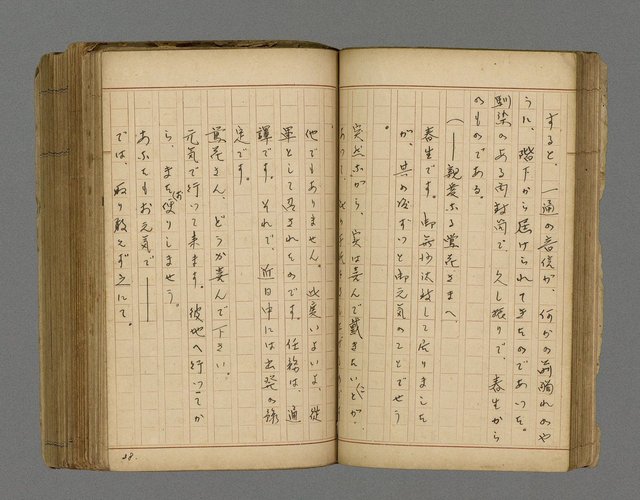 すると、一通の音信が、何かの前触れのや
うに、階下から届けられてきたのであつた。
馴染のある両封筒で、久し振りで、春生から
のものである。
(――親愛なる鶯花さまへ、
春生です。御無沙汰致して居りました
が、其の後ずつと御元気のことでせう
。
突然ながら、実は喜んで戴きたいことが
あつて、
他でもありません。此度いよいよ、従
軍として召されたのです。任務は、通
譯です。それで、近日中には出発の豫
定です。
鶯花さん、どうか喜んで下さい。
元気で行つて来ます。彼地へ行つてか
ら、またお便りしませう。
あなたもお元気で――
では、取り敢えず之にて。
28.